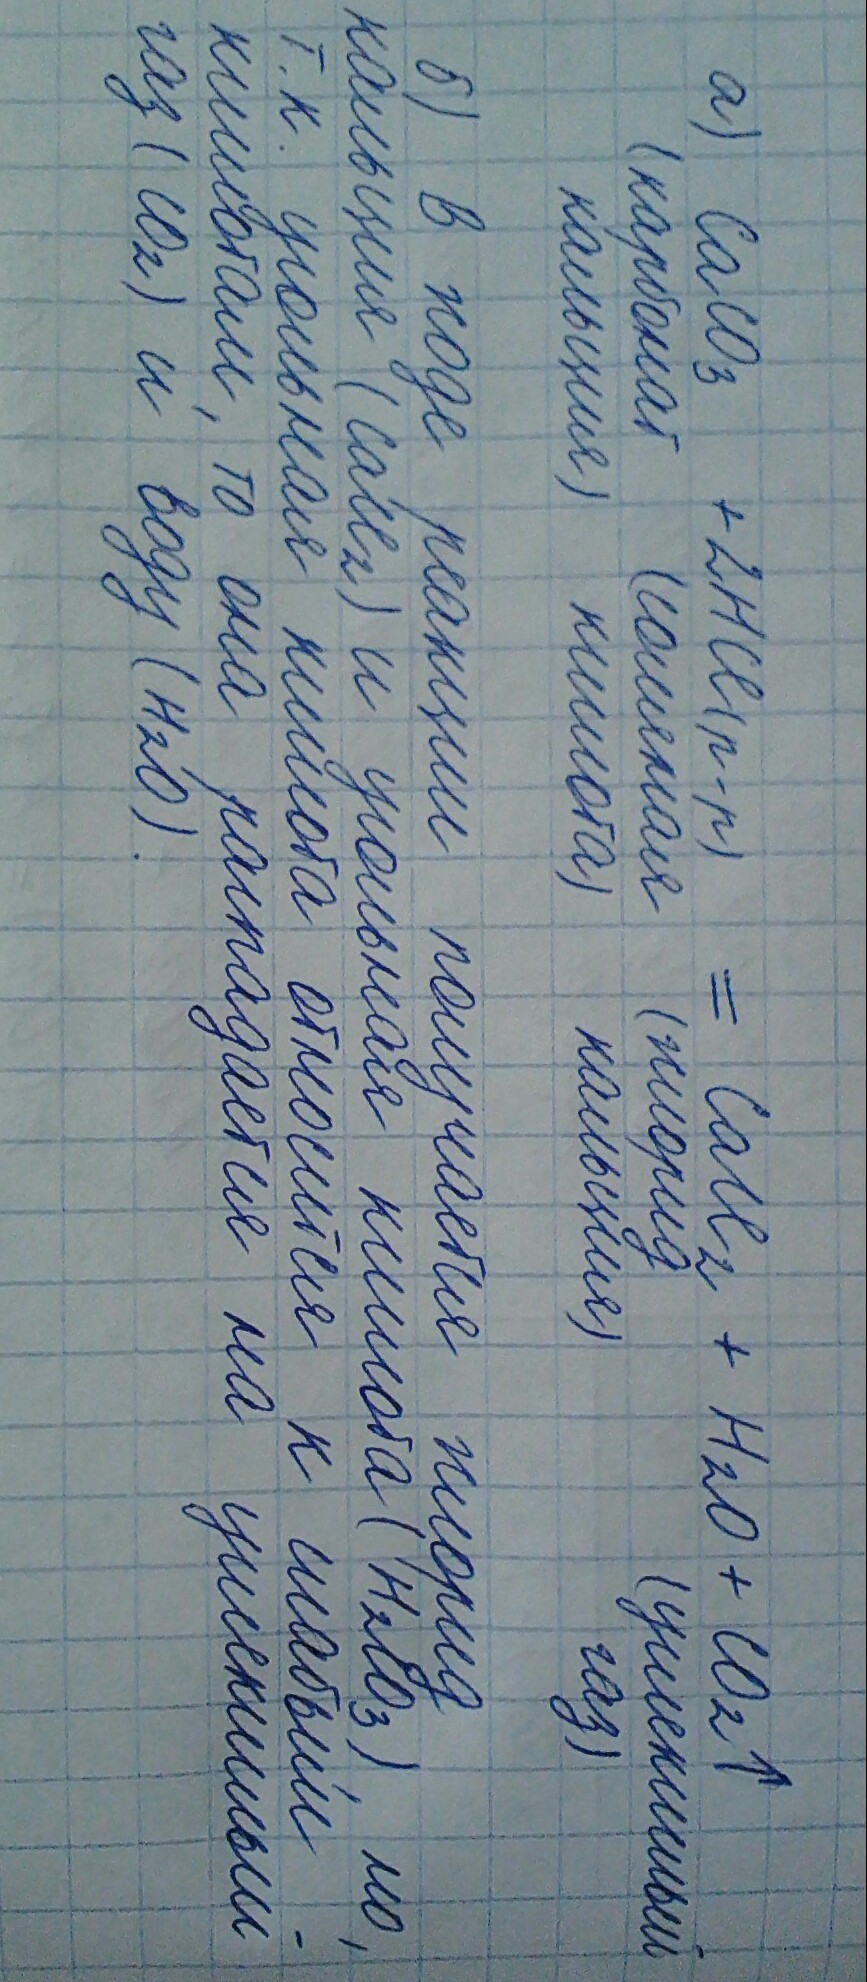 а) CaCO3 + 2HCl(р-р) = CaCl2 + H2O + CO2↑
(карбонат (соляная (хлорид (углекислый
кальция) кислота) кальция) газ)
б) В ходе реакции получается хлорид
кальция (CaCl2) и угольная кислота (H2CO3) но,
т.к. угольная кислота относится к слабым -
кислотам, то она распадается на углекислый
газ (CO2) и воду (H2O).